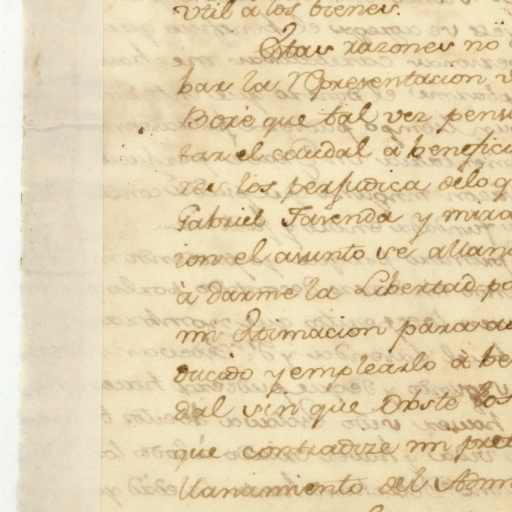 util á los bienes.
Estas razones no
bar la Representacion
Boré que tal vez pens
tar el caudal a benefici
res los perjudica delo q
Gabriel Farenda y mira
ion el asunto se allan
à darme la Libertad po
mi estimacion para
ducido y emplearlo à be
dal sin que obste los
que contradize mi pre
llanamiento del Adm